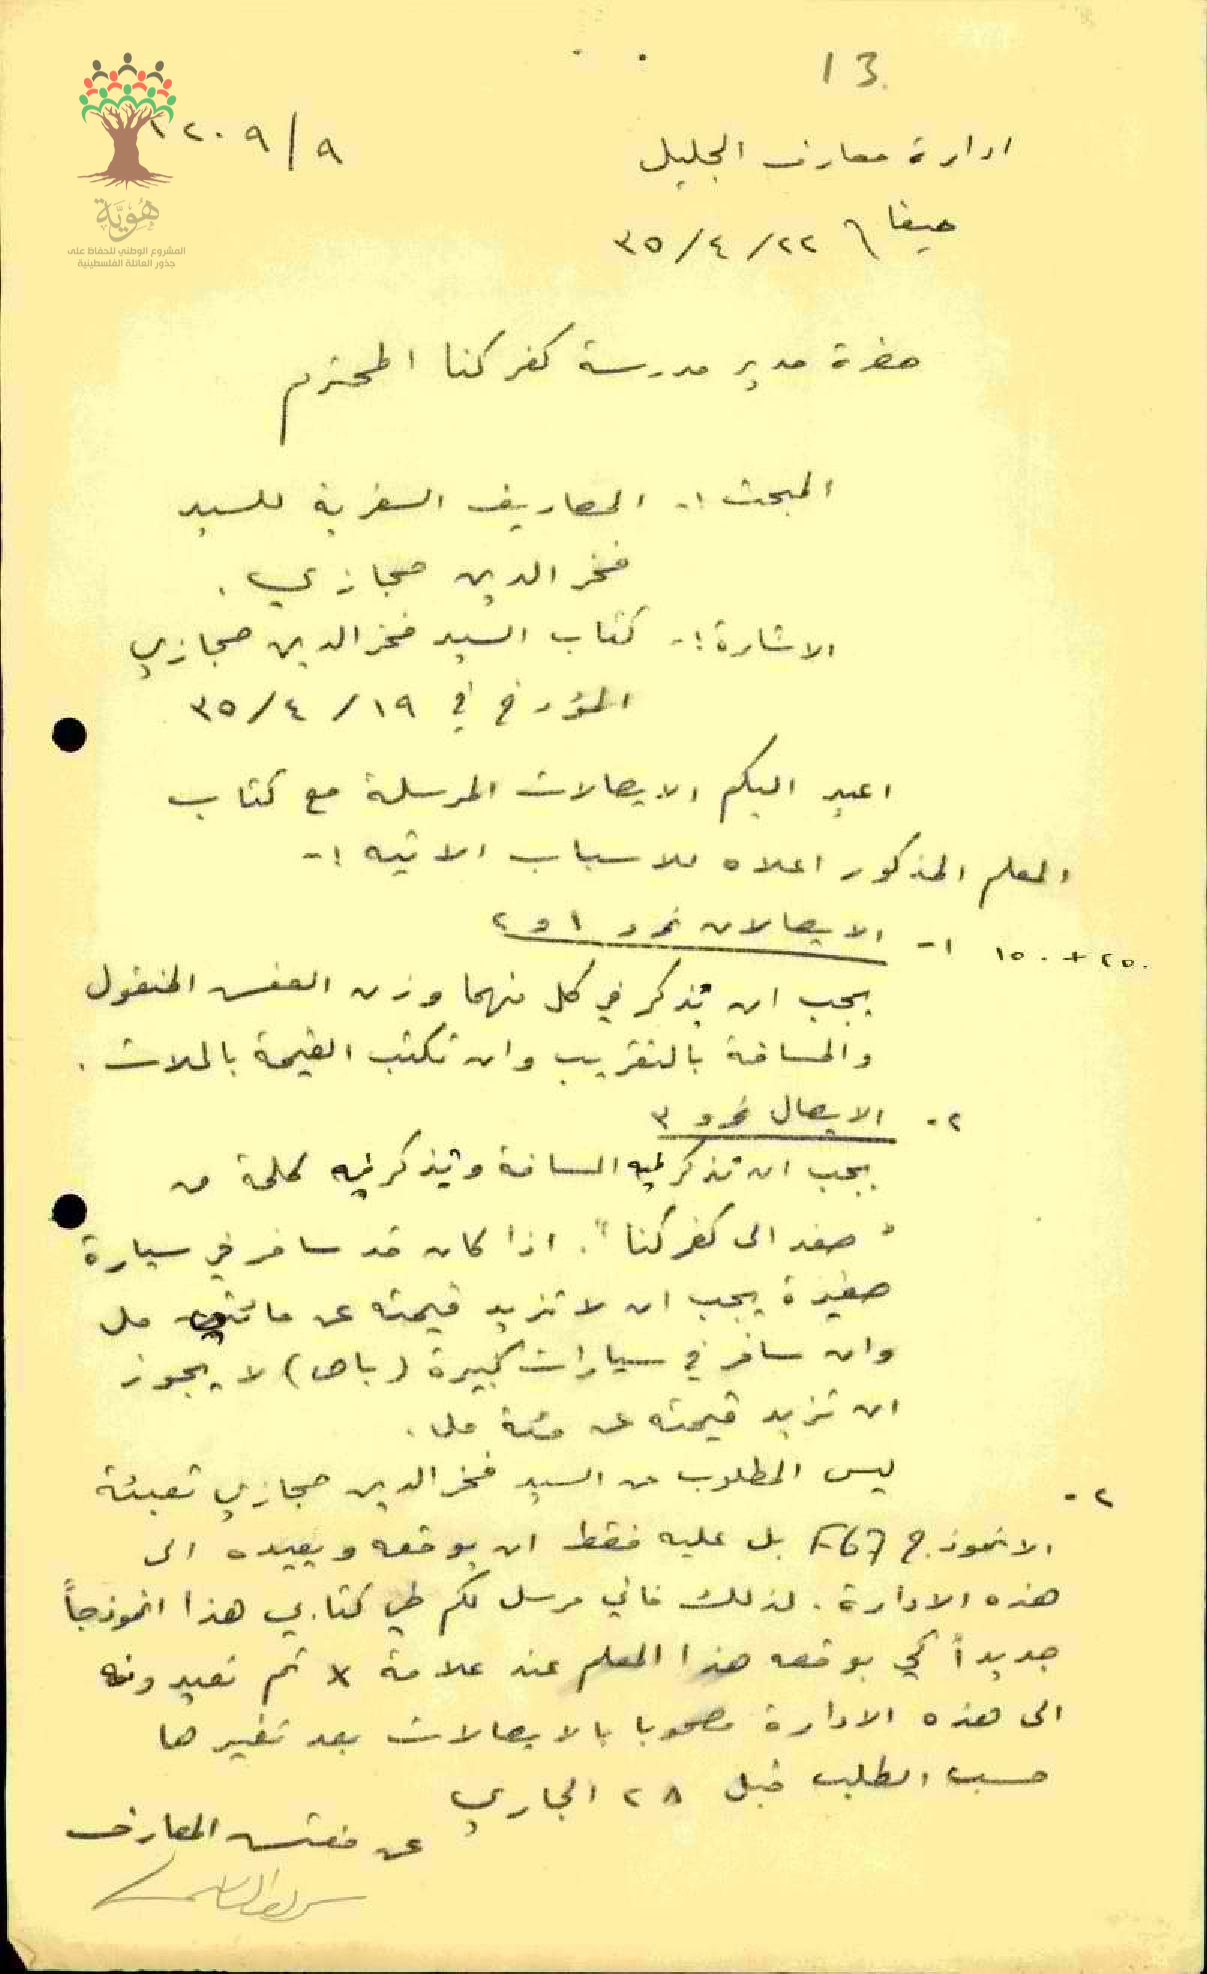 13
ادارة معارف الجليل
١٢٠٩/٩
حيفا ٢٢/٤/٣٥
هُوِيَّة
المشروع الوطني للحفاظ على
جذور العائلة الفلسطينية
حضرة مدير مدرسة كفركنا المحترم
المبحث :- المصاريف السفرية للسيد
فخر الدين حجازي .
الاشارة :- كتاب السيد فخر الدين حجازي
المؤرخ في ١٩/٤/٣٥
اعيد اليكم الايصالات المرسلة مع كتاب
المعلم المذكور اعلاه للاسباب الاتيه :-
٢٥٠ + ١٥٠ ١- الايصالان نمرو ١ و ٢
يجب ان يذكر في كل منهما وزن العفش المنقول
والمسافة بالتقريب وان تكتب القيمة بالملات .
٢- الايصال نمرو ٣
يجب ان تذكر فيه المسافة ويذكر فيه كلمة من
" صفد الى كفركنا " . اذا كان قد سافر في سيارة
صغيرة يجب ان لا تزيد قيمته عن مائتي مل
وان سافر في سيارات كبيرة (باص) لا يجوز
ان تزيد قيمته عن مئة مل .
٢- ليس المطلوب من السيد فخر الدين حجازي تعبئة
الانموذج 67 بل عليه فقط ان يوقعه ويعيده الى
هذه الادارة . لذلك فاني مرسل لكم طي كتابي هذا انموذجاً
جديداً كي يوقعه هذا المعلم عند علامة x ثم تعيدونه
الى هذه الادارة مصحوبا بالايصالات بعد تغييرها
حسب الطلب قبل ٢٨ الجاري
عن مفتش المعارف